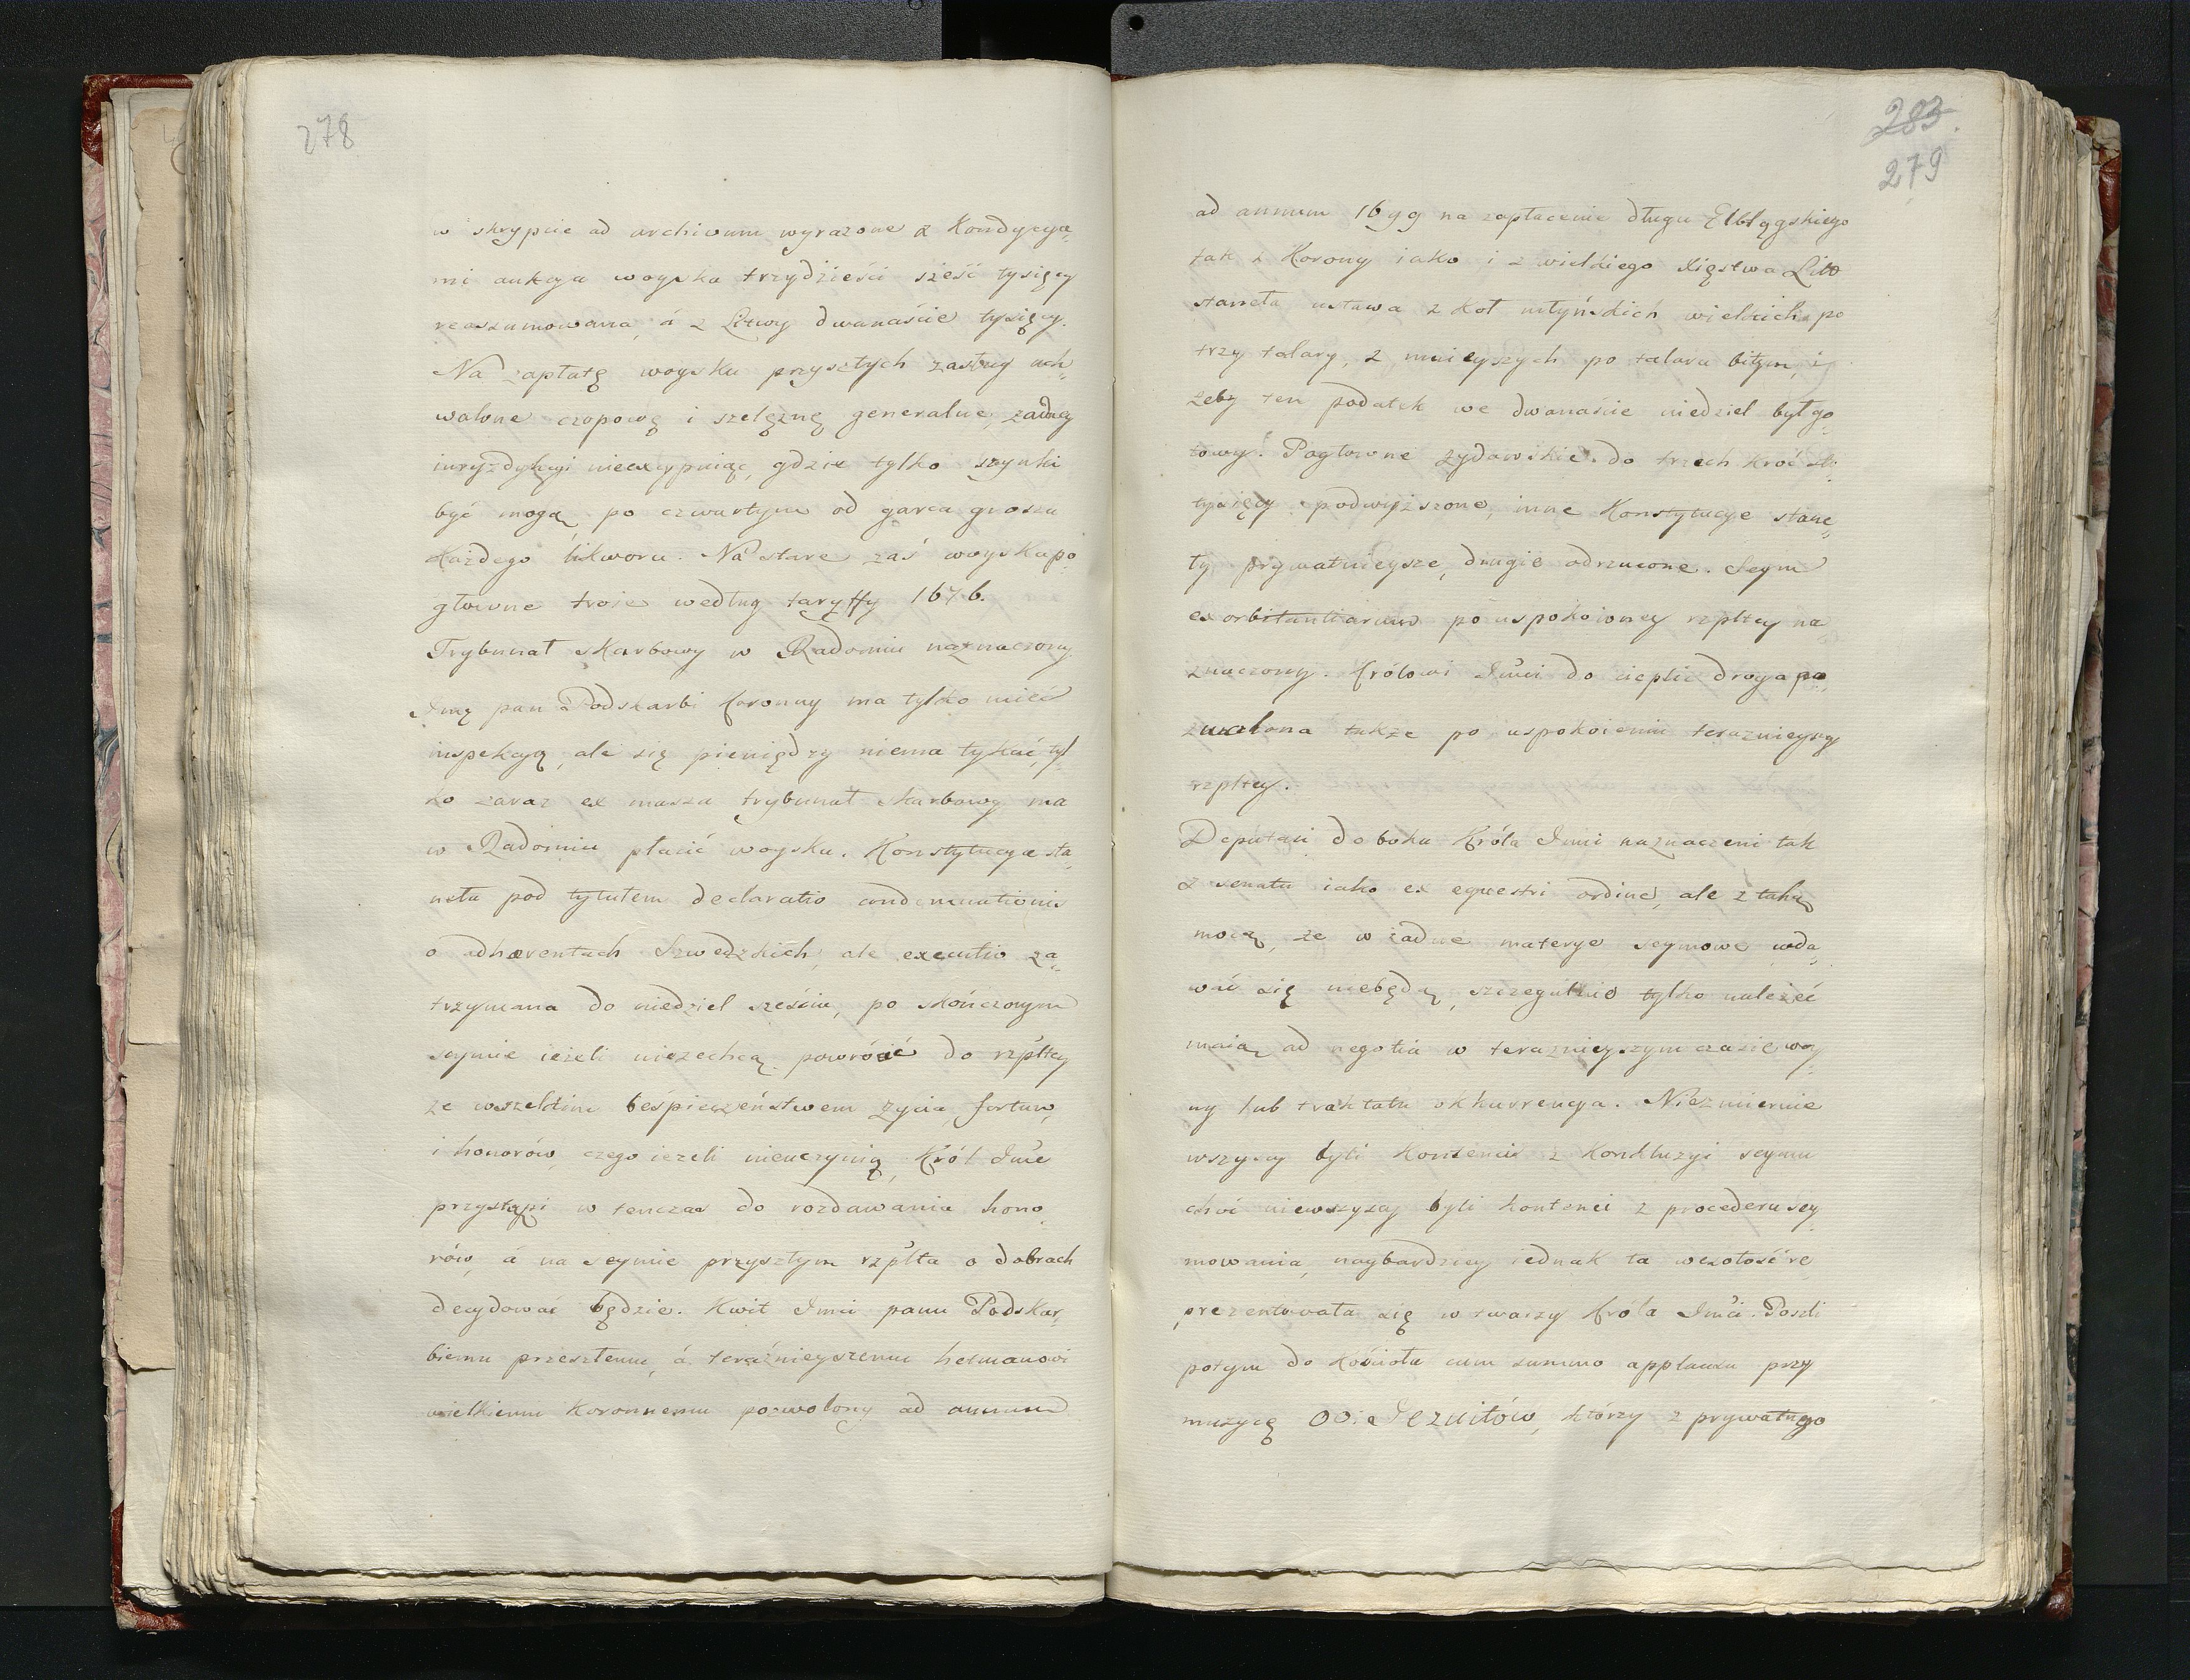 278
w skrypcie ad archivum wyrazone z Kondycya„
mi aukcya woyska trzydzieści sześć tysięcy
reaszumowana, á z Litwy dwanaście tysięcy.
Na zapłatę woysku przyszłych zasług uch„
walone czopowę i szelężnę generalne, żadney
iuryzdykcyi nieexcypuiąc, gdzie tylko szynki
być mogą, po czwartym od garca groszu
Każdego likworu. Na stare zaś woysku po„
główne troie według taryffy 1676.
Trybunał skarbowy w Radomiu naznaczony.
Imę pan Podskarbi koronny ma tylko mieć
inspekcyą, ale się pieniędzy niema tykać, tyl
ko zaraz ex massa trybunał skarbowy ma
w Radomiu płacić woysku. Konstytucya sta„
neła pod tytułem declaratio condemnationis
o adhærentach Szwedzkich, ale executio za„
trzymana do niedziel sześciu, po skończonym
seymie ieżeli niezechcą powrócić do rzpltey
ze wszelkim bespieczeństwem życia, fortun,
i honorów, czego ieżeli nieuczynią, Król Jmć
przystąpi w tenczas do rozdawania hono„
rów, á na seymie przyszłym rzplta o dobrach
decydować będzie. Kwit Jmci panu Podskar„
biemu przeszłemu, á teraźnieyszemu hetmanowi
wielkiemu Koronnemu pozwolony ad annum
283.
279
ad annum 1699 na zapłacenie długu Elbłągskiego
tak z Korony iako i z wielkiego xięstwa Litt
staneła ustawa z Kół młyńskich wielkich po
trzy talary, z mnieyszych po talaru bitym, i
żeby ten podatek we dwanaście niedziel był go„
towy. Pogłowne żydowskie do trzech kroć sto
tysięcy podwyższone, inne Konstytucye stane„
ły prywatnieysze, drugie odrzucone. Seym
exorbitantiarum po uspokoioney rzpltey na
znaczony. Królowi Jmci do cieplic droga po„
zwolona także po uspokoieniu teraznieyszy
rzpltey.
Deputaci do boku Króla Jmci naznaczeni tak
z senatu iako ex equestri ordine, ale z taką
mocą, że w żadne materye seymowe wda„
wać się niebędą, szczegulnie tylko należeć
maią ad negotia w teraznieyszym czasie woy„
ny lub traktatu okkurrencya. Niezmiernie
wszyscy byli kontenci z konkluzyi seymu
choć niewszyscy byli kontenci z procederu sey
mowania, naybardziey iednak ta wesołość re„
prezentowała się w twarzy króla Jmci. Poszli
potym do kościoła cum summo applausu przy
muzycę OO. Jezuitów, którzy z prywatnego